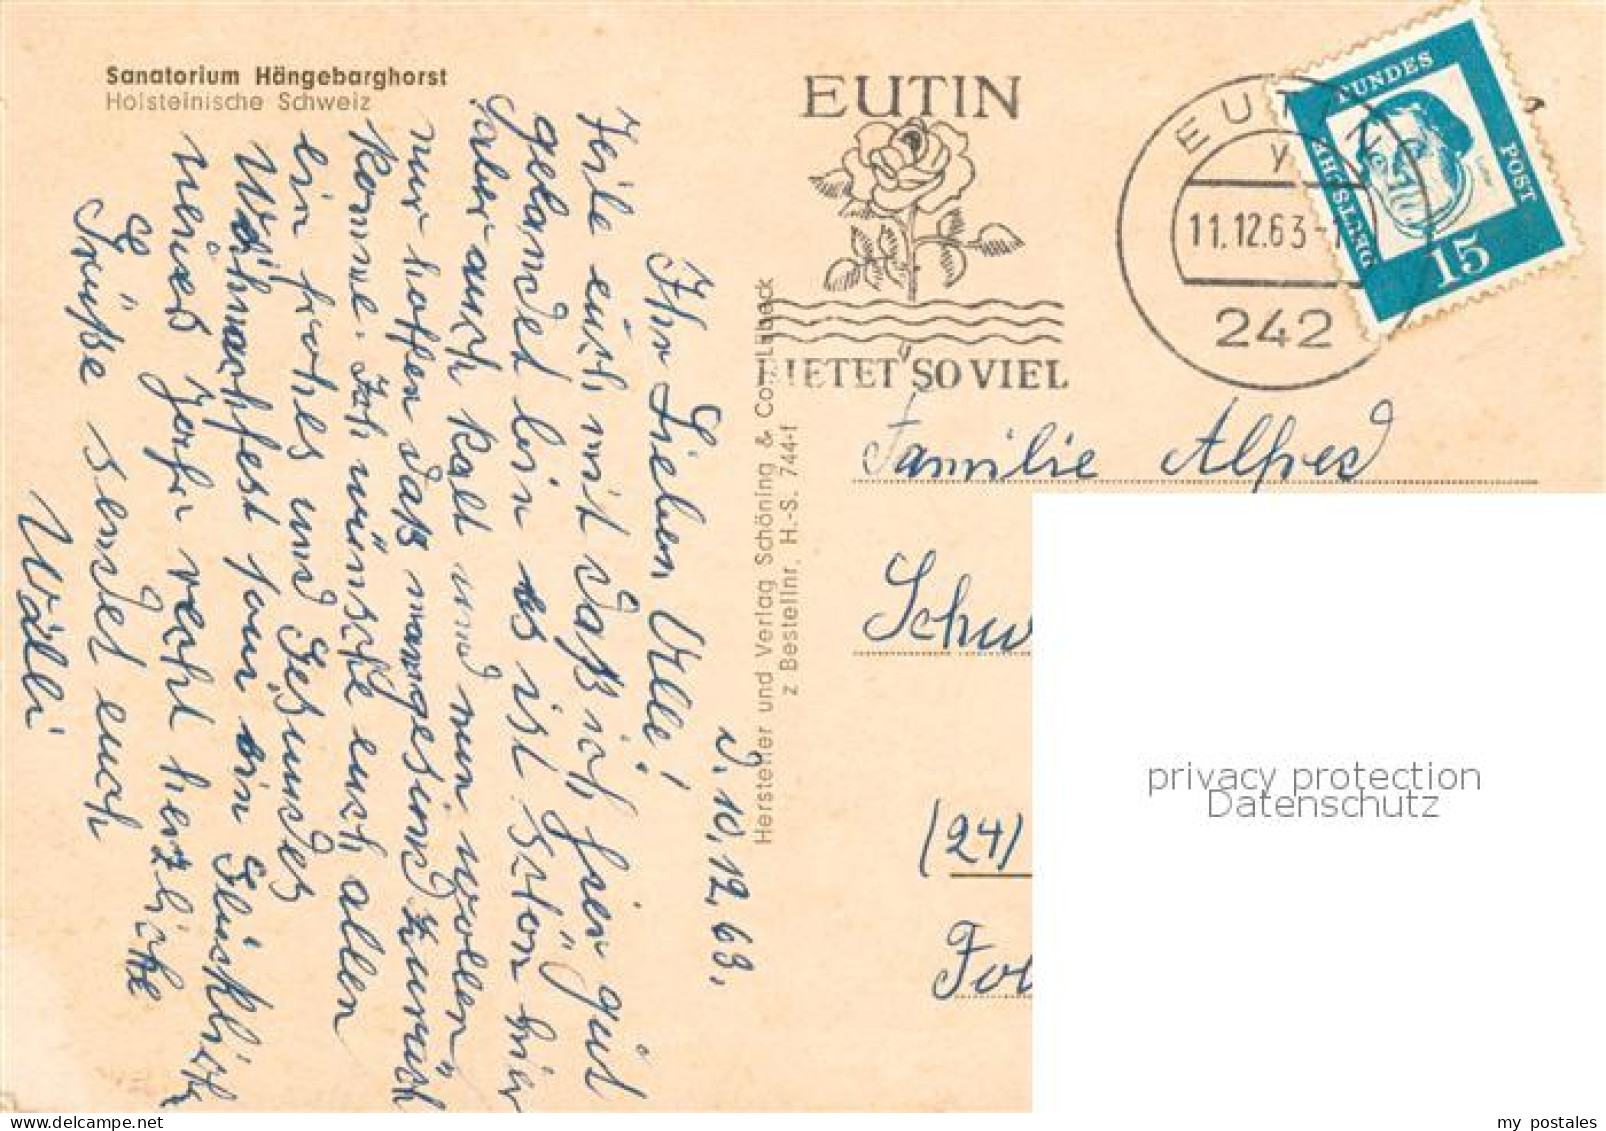 Sanatorium Hängebarghorst
Holsteinische Schweiz
d. 10.12.63.
Ihr Lieben Alle!
Teile euch mit daß ich hier gut
gelandet bin es ist schön hier
aber auch kalt und nun wollen
wir hoffen daß man gesund zurück
komme. Ich wünsche euch allen
ein frohes und Gesundes
Weihnachtsfest sowie ein Glückliches
neues Jahr recht herzliche
Grüße sendet euch
Walli
Hersteller und Verlag Schöning & Co., Lübeck
z Bestellnr. H.-S. 744-f
EUTIN
BIETET SO VIEL
EUTIN
y
11.12.63-1
242
DEUTSCHE
BUNDES
POST
15
Familie Alfred
Schw
(24)
privacy protection
Datenschutz
my postales